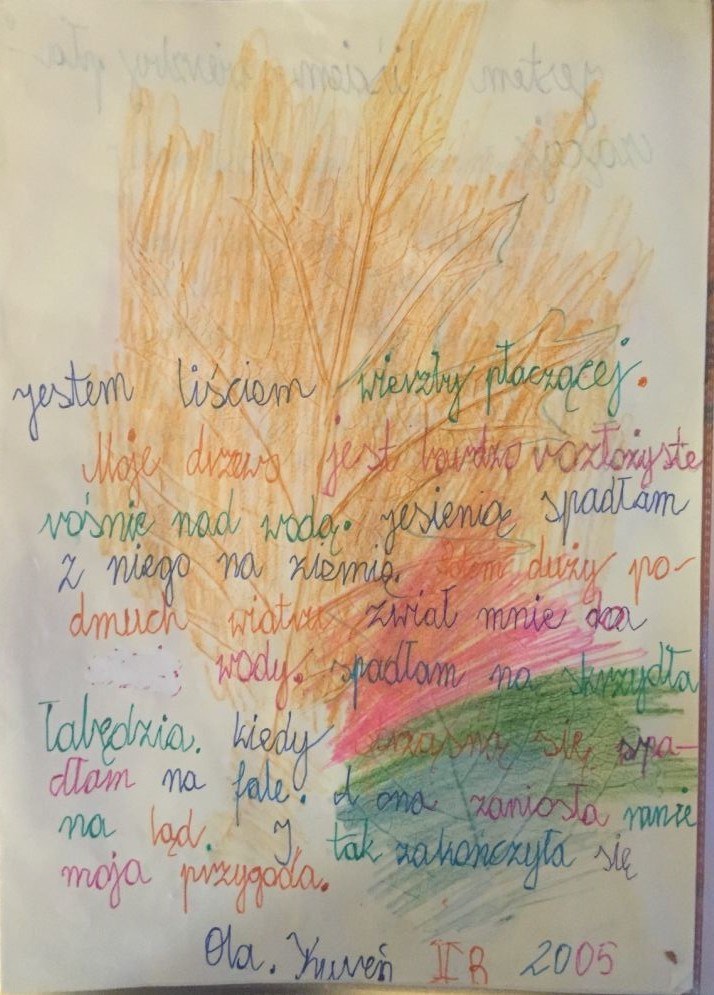 jestem liściem wierzby płaczącej.
Moje drzewo jest bardzo rozłożyste
rośnie nad wodą. jesienią spadłam
z niego na ziemię. Potem duży po-
dmuch wiatru zwiał mnie do
wody. spadłam na skrzydła
łabędzia. kiedy się spa-
dłam na fale. A ona zaniosła mnie
na ląd. I tak zakończyła się
moja przygoda.
Ola. II B 2005